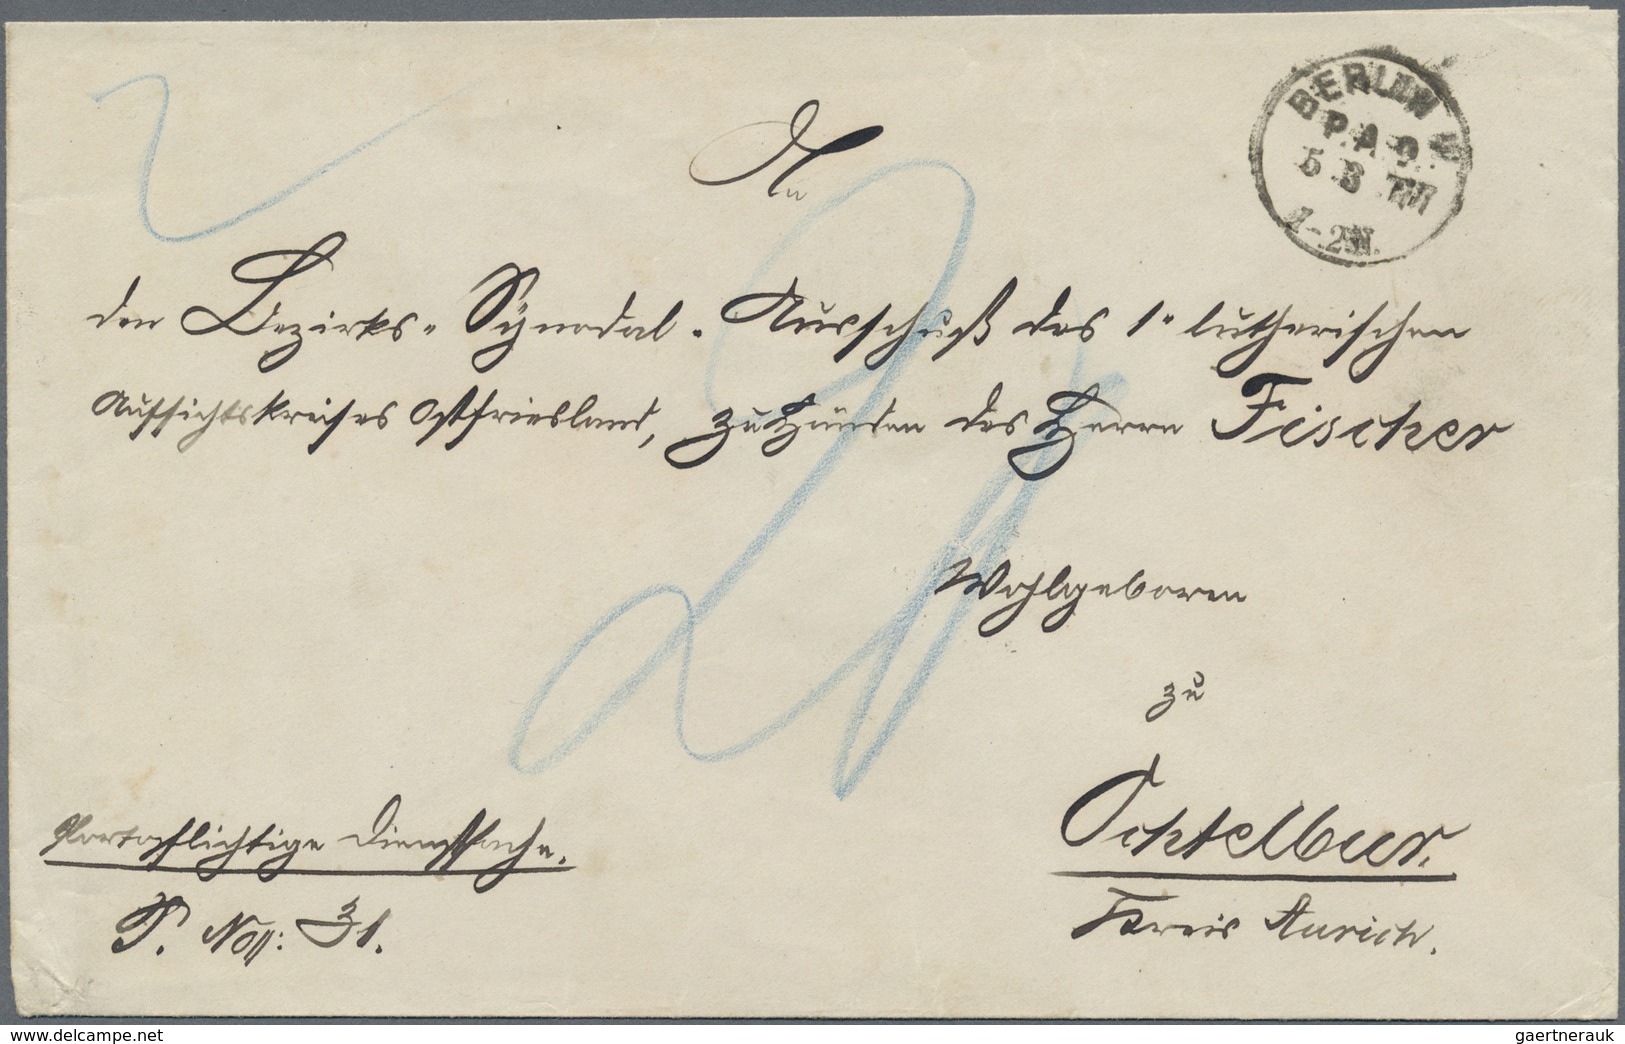 BERLIN W
P.A.9.
5 3 77
1-2 N.
An
den Bezirks-Synodal-Ausschuß des 1ten lutherischen
Aufsichtskreises Ostfriesland, zu Händen des Herrn Fischer
Wohlgeboren
zu
Ochtelbur.
Kreis Aurich.
Portopflichtige Dienstsache.
P. No: 31.
20
www.delcampe.net
gaertnerauk